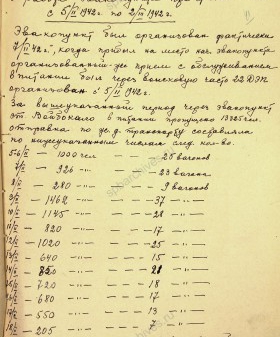 с 5/II 1942г. по 2/III 1942г.
Эвакопункт был организован фактически
7/II 42г., когда прибыл на место нач. эвакопункта
организованный прием с обслуживанием
в питании был через войсковую часть 22
организован с 5/II 1942г.
За вышеуказанный период через эвакопункт
ст. Войбокало в питании пропущено 13725 чел.
отправка по ж.д. транспорту составляла
по нижеуказанным числам след. кол-во.
5-6/II — 1000 чел — 25 вагонов
7/II — 926 —"— 23 вагона
8/II — 280 —"— 9 вагонов
9/II — 1462 —"— 37 —"—
10/II — 1145 —"— 28 —"—
11/II — 820 —"— 17 —"—
12/II — 1020 —"— 25 —"—
13/II — 640 —"— 15 —"—
14/II — —"— —"—
15/II — 720 —"— 18 —"—
16/II — 680 —"— 17 —"—
17/II — 550 —"— 13 —"—
18/II — 205 —"— 7 —"—